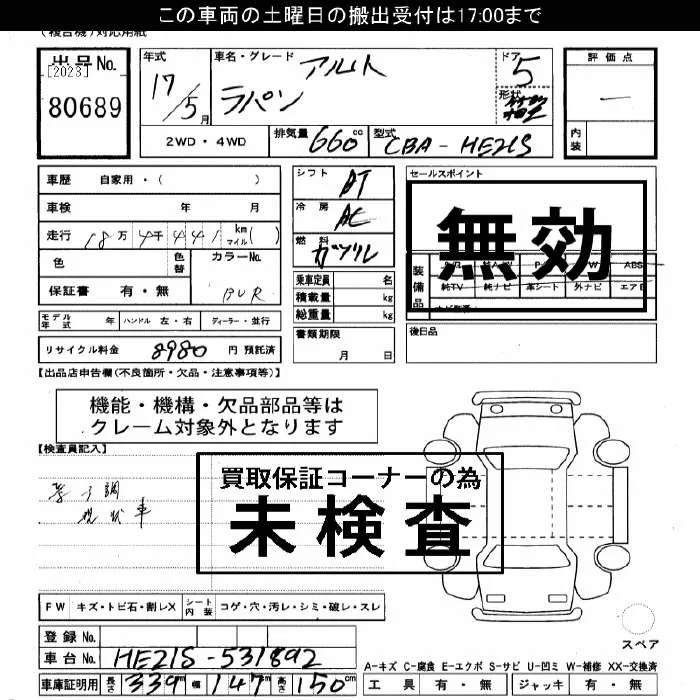 この車両の土曜日の搬出受付は17:00まで
(複合機)対応用紙
出品No. [2023] 80689
年式 17/5月
車名・グレード アルト ラパン
ドア 5
形状
評価点 —
内装
2WD・4WD
排気量 660cc
型式 CBA-HE21S
車歴 自家用・( )
車検 年 月
走行 18万4千441 km マイル( )
色 色替 カラーNo. BUR
保証書 有・無
シフト AT
冷房 AC
燃料 ガソリン
乗車定員 名
積載量 kg
総重量 kg
セールスポイント
無効
装備品 ABS
純TV 純ナビ 革シート 外ナビ エアB
モデル年式 年 ハンドル 左・右 ディーラー・並行
書類期限 月 日
後日品
リサイクル料金 8980 円 預託済
【出品店申告欄(不良箇所・欠品・注意事項等)】
機能・機構・欠品部品等は
クレーム対象外となります
【検査員記入】
買取保証コーナーの為
未検査
調
現状車
FW キズ・トビ石・割レX シート内装 コゲ・穴・汚レ・シミ・破レ・スレ
登録No.
車台No. HE21S-531892
車庫証明用 長さ 339cm 幅 147cm 高さ 150cm
スペア
A-キズ C-腐食 E-エクボ S-サビ U-凹ミ W-補修 XX-交換済
工具 有・無 ジャッキ 有・無